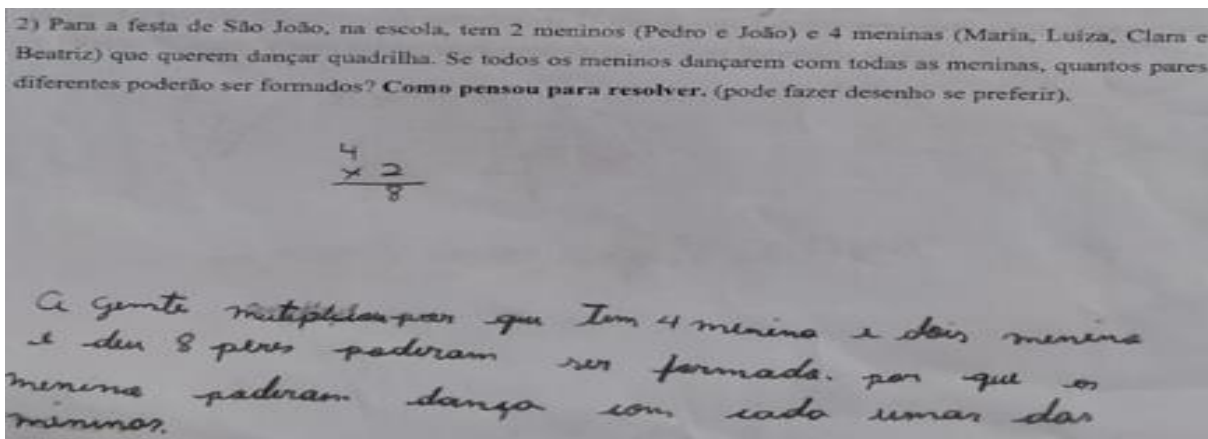 2) Para a festa de São João, na escola, tem 2 meninos (Pedro e João) e 4 meninas (Maria, Luíza, Clara e
Beatriz) que querem dançar quadrilha. Se todos os meninos dançarem com todas as meninas, quantos pares
diferentes poderão ser formados? Como pensou para resolver. (pode fazer desenho se preferir).
4
x 2
8
a gente por que Tem 4 menina e dois menino
e deu 8 peres poderam ser formada. por que os
menino poderam dança com cada umas das
mininas.